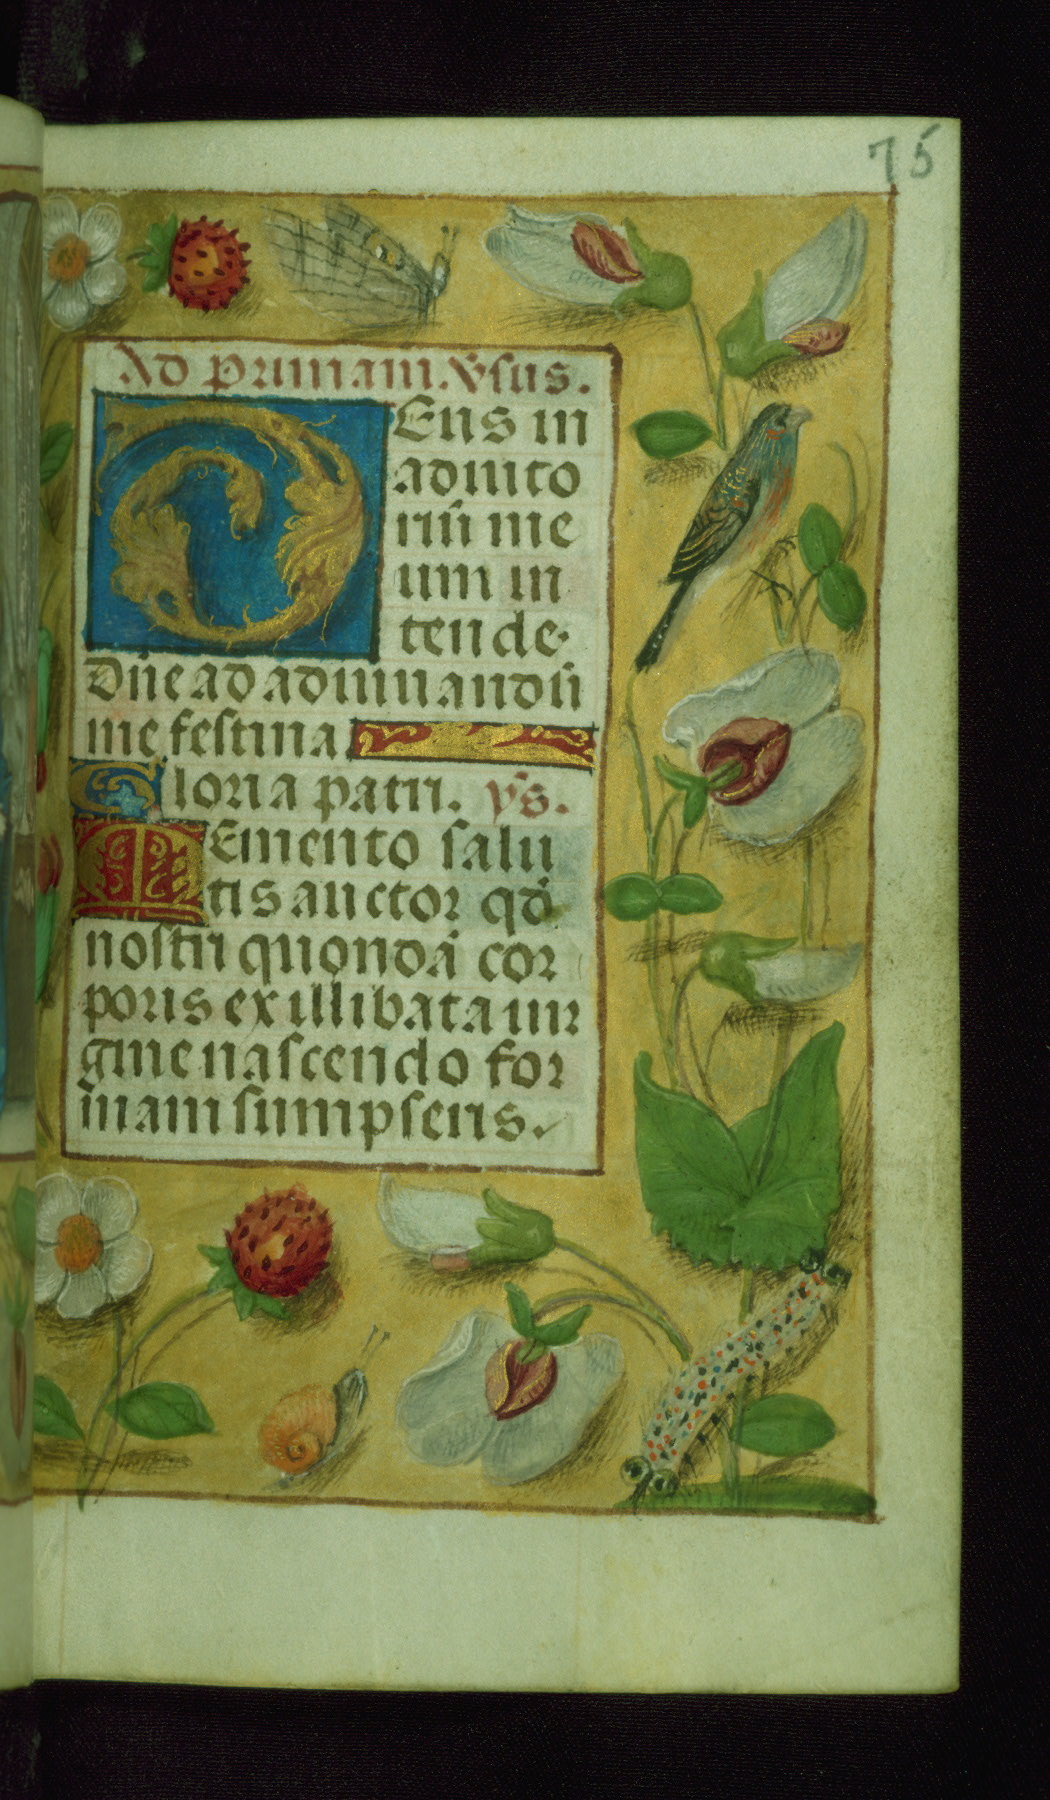 75
Ad primam. Vsus.
DEus in
adiuto
riū me
um in
tende.
Dn̄e ad adiuuandū
me festina
Gloria patri. v̄s.
MEmento salu
tis auctor qd̄
nostri quondā cor
poris ex illibata uir
gine nascendo for
mam sumpseris.